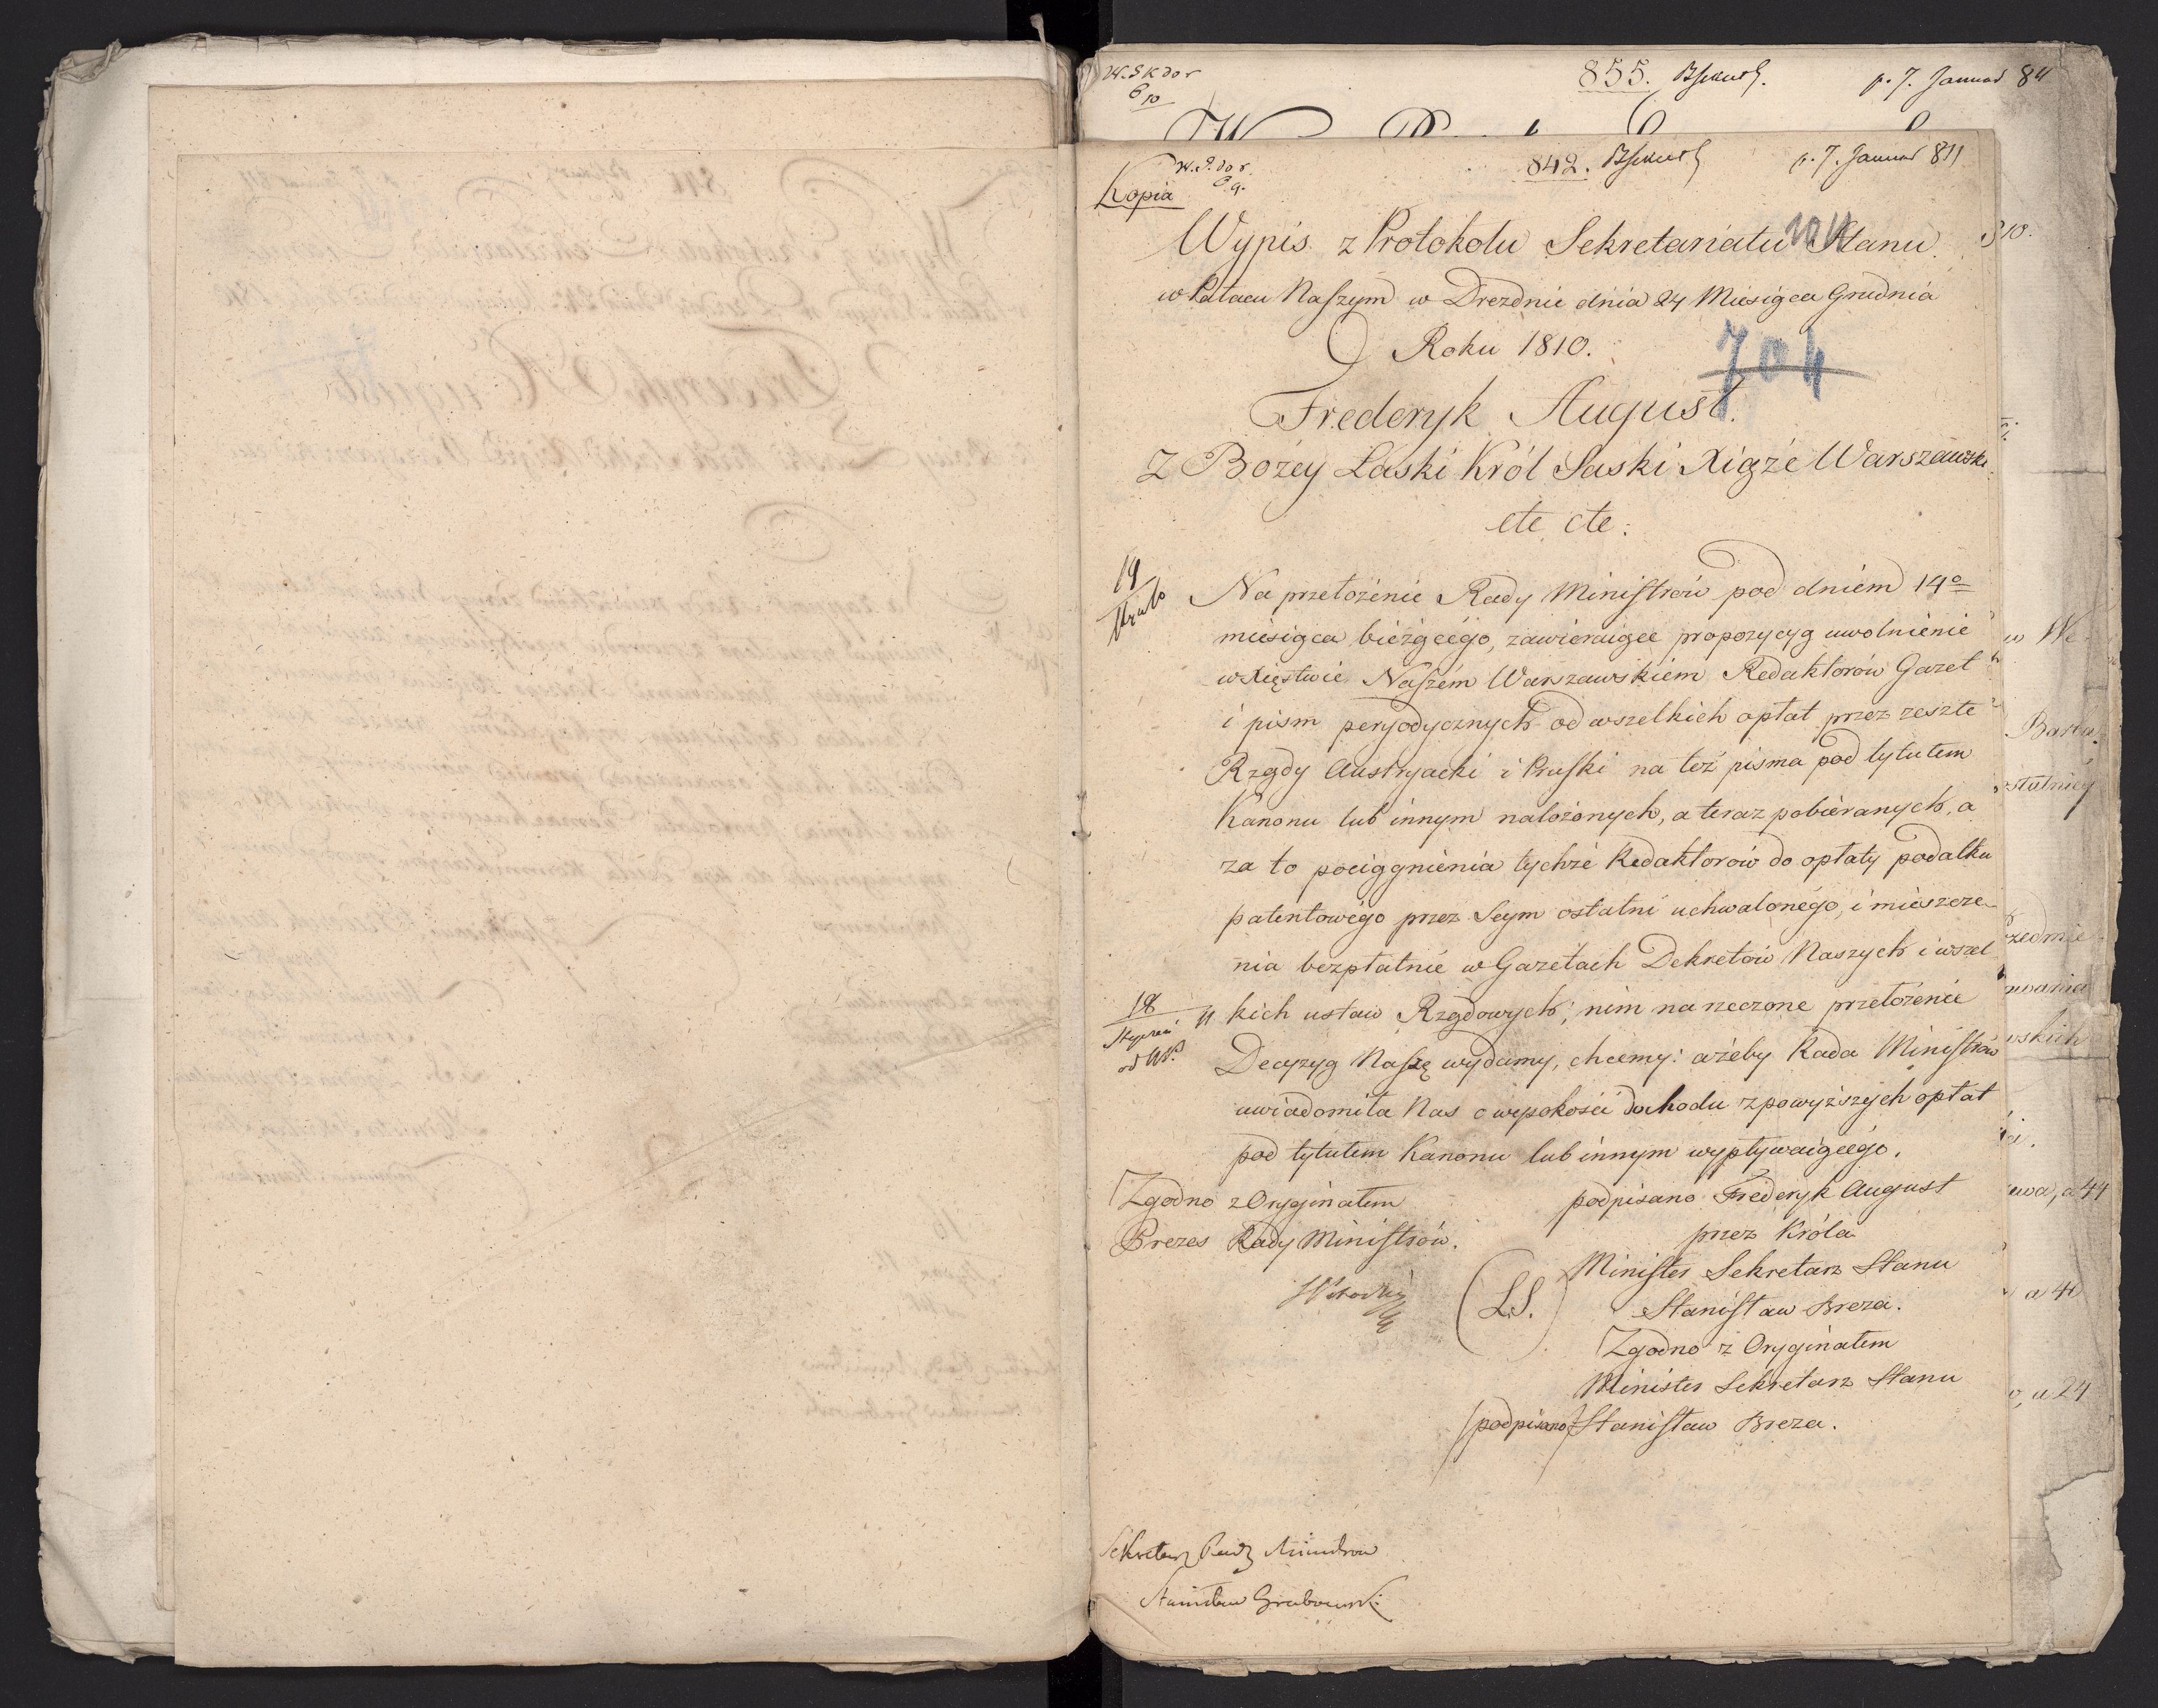 855.
p. 7. Januar 811
Kopia
842.
p. 7. Januar 811
Wypis z Protokołu Sekretariatu Stanu.
w Pałacu Naszym w Dreznie dnia 24 Miesiąca Grudnia
Roku 1810.
704
Frederyk August.
Z Bożey Łaski Król Saski Xiąże Warszawski
etc. etc.
Na przełożenie Rady Ministrów pod dniem 14º
miesiąca bieżącégo, zawieraiące propozycyą uwolnienie
w Xięstwie Naszém Warszawskiem Redaktorów Gazet
i pism peryodycznych od wszelkich opłat przez zeszłe
Rządy Austryacki i Pruski na też pisma pod tytułem
Kanonu lub innym nałożonych, a teraz pobieranych, a
za to pociągnienia tychże Redaktorów do opłaty podatku
patentowégo przez Seym ostatni uchwalonégo, i mieszcze-
nia bezpłatnie w Gazetach Dekretów Naszych i wszel
kich ustaw Rządowych; nim na rzeczone przełożenie
Decyzyą Naszę wydamy, chcemy: ażeby Rada Ministrów
uwiadomiła Nas o wysokości dochodu z powyższych opłat
pod tytułem Kanonu lub innym wypływaiącégo.
Zgodno z Oryginałem
Prezes Rady Ministrów.
podpisano Frederyk August
przez Króla
Minister Sekretarz Stanu
(L.S.) Stanisław Breza.
Zgodno z Oryginałem
Minister Sekretarz Stanu
/podpisano/ Stanisław Breza.
Sekretarz Rady Ministrow
Stanisław Grabowski